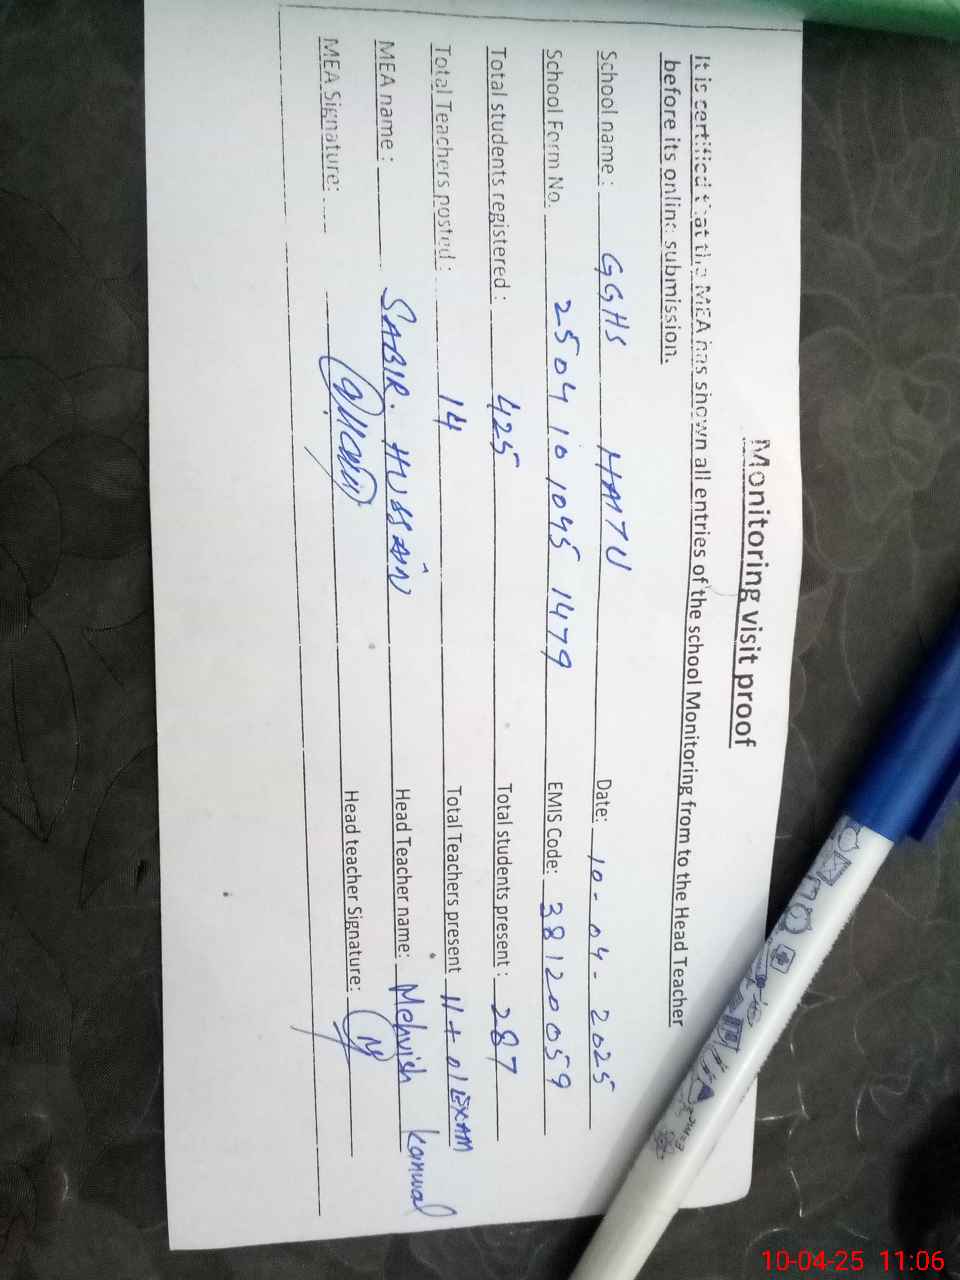 Monitoring visit proof
It is certified that the MEA has shown all entries of the school Monitoring from to the Head Teacher
before its online submission.
School name : GGHS HATU Date: 10-04-2025
School Form No. 2504 10 1045 1479 EMIS Code: 38120059
Total students registered : 425 Total students present : 287
Total Teachers posted : 14 Total Teachers present 11 + 01 EXAM
MEA name : SABIR. HUSSAIN Head Teacher name: Mehvish Kanwal
MEA Signature: Head teacher Signature:
10-04-25 11:06